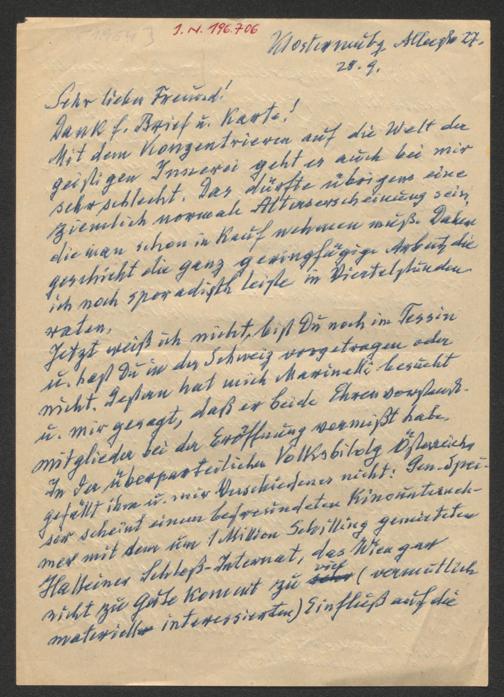 [1964]
I.N. 196.706
Klosterneubg Alleestr 27.
28.9.
Sehr lieber Freund!
Dank f. Brief u. Karte!
Mit dem Konzentrieren auf die Welt der
geistigen Innerei geht es auch bei mir
sehr schlecht. Das dürfte übrigens eine
ziemlich normale Alterserscheinung sein,
die man schon in Kauf nehmen muß. Daher
geschieht die ganz geringfügige Arbeit, die
ich noch sporadisch leiste in Viertelstunden-
raten.
Jetzt weiß ich nicht, bist Du noch im Tessin
u. hast Du in der Schweiz vorgetragen oder
nicht. Gestern hat mich Marinelli besucht
u. mir gesagt, daß er beide Ehrenvorstands-
mitglieder bei der Eröffnung vermißt habe.
In der überparteilichen Volksbildg Österreichs
gefällt ihm u. mir Verschiedenes nicht: Gen. Spei-
ser scheint einem befreundeten Kinounterneh-
mer mit dem um 1 Million Schilling gemieteten
Halleiner Schloß-Internat, das Wien gar
nicht zu Gute kommt zu viel (vermutlich
materiell interessierten) Einfluß auf die